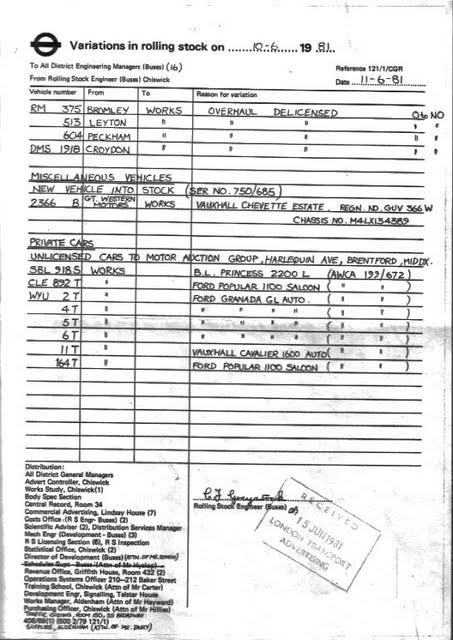 Variations in rolling stock on 10-6. 1981.
To All District Engineering Managers (Buses) (16)
Reference 121/1/CGR
From Rolling Stock Engineer (Buses) Chiswick
Date 11-6-81
Vehicle number From To Reason for variation
RM 375 BROMLEY WORKS OVERHAUL DELICENSED O to NO
513 LEYTON " " " " "
604 PECKHAM " " " " "
DMS 1918 CROYDON " " " " "
MISCELLANEOUS VEHICLES
NEW VEHICLE INTO STOCK (SER NO. 750/685)
2366 B GT. WESTERN MOTORS WORKS VAUXHALL CHEVETTE ESTATE. REGN. NO. GUV 366 W
CHASSIS NO. M4LX134389
PRIVATE CARS
UNLICENSED CARS TO MOTOR AUCTION GROUP, HARLEQUIN AVE, BRENTFORD, MIDDX.
SBL 918 S WORKS B.L. PRINCESS 2200 L (AWCA 199/672)
CLE 892 T " FORD POPULAR 1100 SALOON ( " " )
WYU 2 T " FORD GRANADA GL AUTO. ( " " )
4 T " " " " " ( " " )
5 T " " " " " ( " " )
6 T " " " " " ( " " )
11 T " VAUXHALL CAVALIER 1600 AUTO ( " " )
164 T " FORD POPULAR 1100 SALOON ( " " )
Distribution:
All District General Managers
Advert Controller, Chiswick
Works Study, Chiswick (1)
Body Spec Section
Central Record, Room 34
Commercial Advertising, Lindsay House (7)
Costs Office (R S Engr- Buses) (2)
Scientific Adviser (2), Distribution Services Manager
Mech Engr (Development - Buses) (3)
R S Licensing Section (6), R S Inspection
Statistical Office, Chiswick (2)
Director of Development (Buses)
Schedules Supt - Buses (Attn of Mr Hyslop)
Revenue Office, Griffith House, Room 432 (2)
Operations Systems Officer 210-212 Baker Street
Training School, Chiswick (Attn of Mr Carter)
Development Engr, Signalling, Telstar House
Works Manager, Aldenham (Attn of Mr Hayward)
Purchasing Officer, Chiswick (Attn of Mr Hillier)
TRAFFIC ROOM 55 BROADWAY
408/89(1) (500 2/79 121/1)
SUPPLIES, ALDENHAM
Rolling Stock Engineer (Buses)
RECEIVED
15 JUN 1981
LONDON TRANSPORT
ADVERTISING